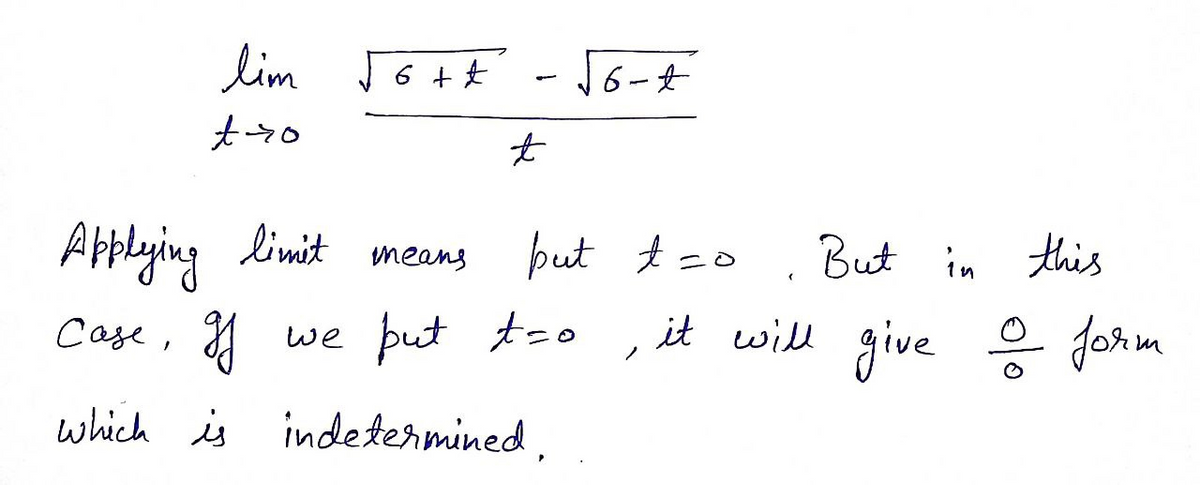 lim √6+t - √6-t
t→0 t
Applying limit means put t=0. But in this
Case, If we put t=0, it will give 0/0 form
which is indetermined.